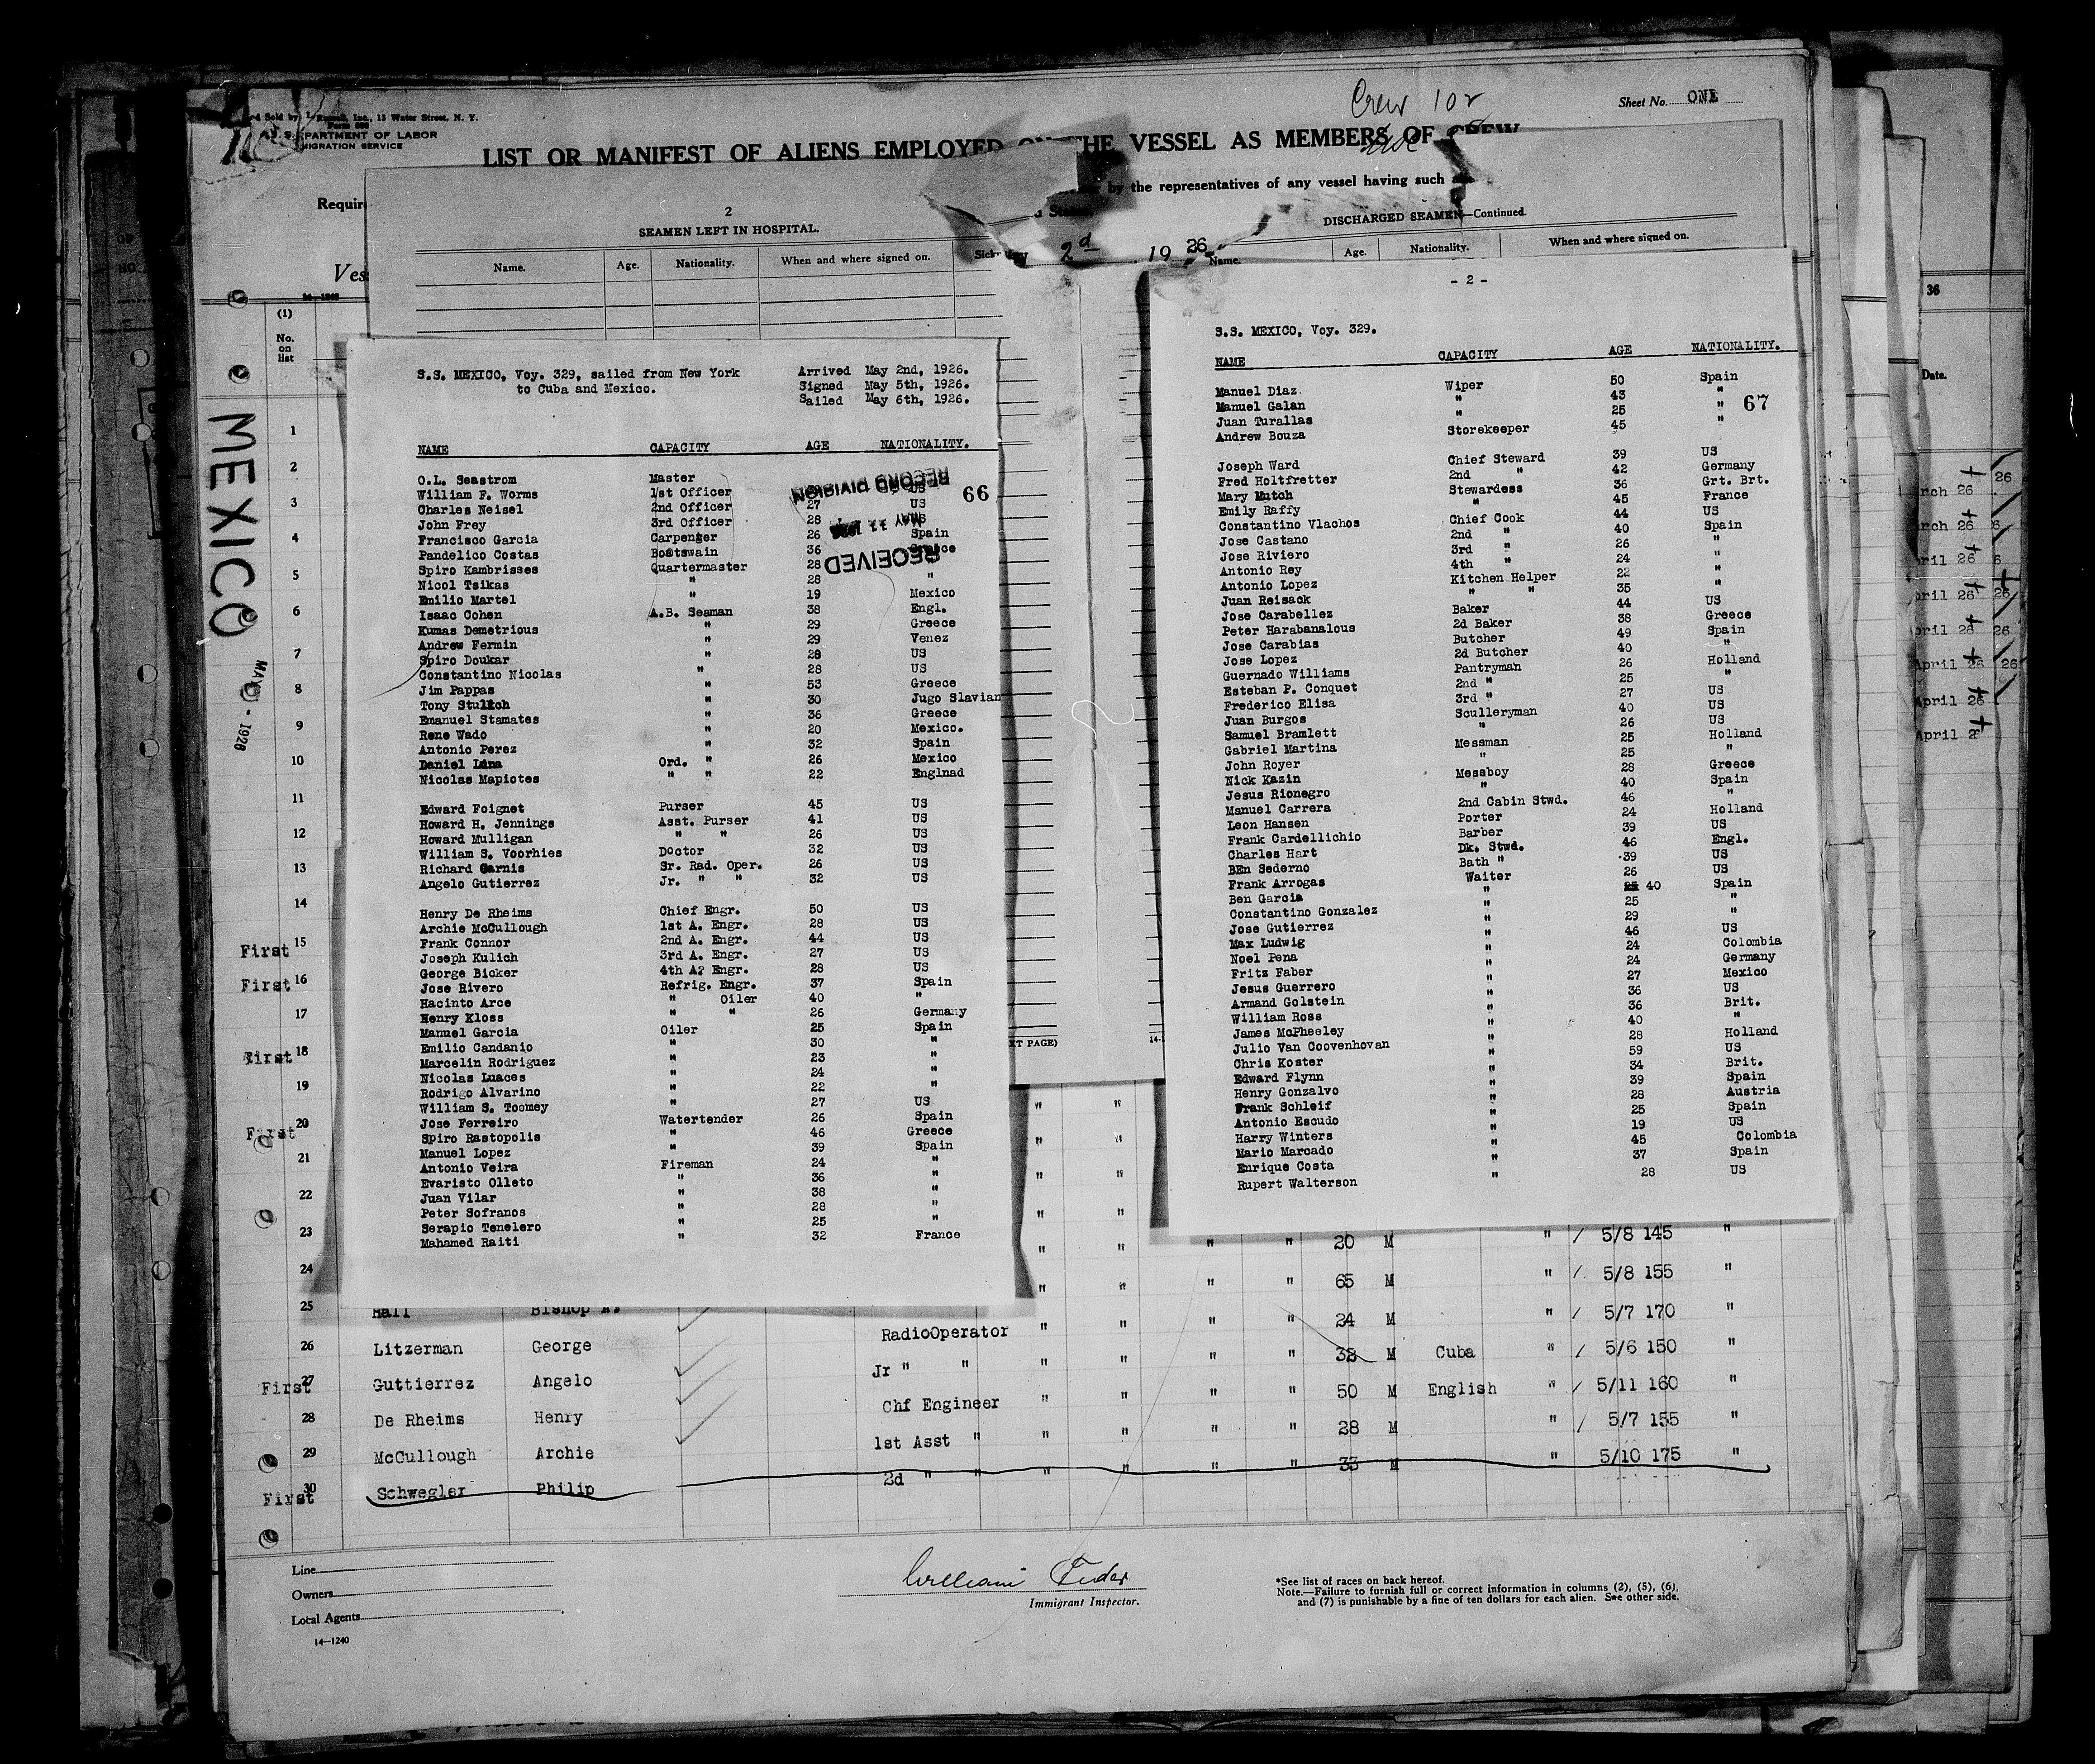 Crew 102
Sheet No. ONE
13 Water Street, N. Y.
DEPARTMENT OF LABOR
IMMIGRATION SERVICE
LIST OR MANIFEST OF ALIENS EMPLOYED ON THE VESSEL AS MEMBERS OF CREW
by the representatives of any vessel having such
2
SEAMEN LEFT IN HOSPITAL.
Name. Age. Nationality. When and where signed on.
2d 1926
DISCHARGED SEAMEN—Continued.
Name. Age. Nationality. When and where signed on.
(1)
No. on list
MEXICO
S.S. MEXICO, Voy. 329, sailed from New York
to Cuba and Mexico.
Arrived May 2nd, 1926.
Signed May 5th, 1926.
Sailed May 6th, 1926.
NAME CAPACITY AGE NATIONALITY.
RECORD DIVISION
RECEIVED
66
O.L. Seastrom Master
William F. Worms 1st Officer
Charles Neisel 2nd Officer 27 US
John Frey 3rd Officer 28 US
Francisco Garcia Carpenter 26 Spain
Pandelico Costas Boatswain 36 Greece
Spiro Kambrisses Quartermaster 28
Nicol Tsikas " 28 "
Emilio Martel " 19 Mexico
Isaac Cohen A.B. Seaman 38 Engl.
Kumas Demetrious " 29 Greece
Andrew Fermin " 29 Venez
Spiro Doukar " 28 US
Constantino Nicolas " 28 US
Jim Pappas " 53 Greece
Tony Stullch " 30 Jugo Slavian
Emanuel Stamates " 36 Greece
Rene Wado " 20 Mexico.
Antonio Perez " 32 Spain
Daniel Lina Ord. " 26 Mexico
Nicolas Mapiotes " " 22 Englnad
Edward Foignet Purser 45 US
Howard H. Jennings Asst. Purser 41 US
Howard Mulligan " " 26 US
William S. Voorhies Doctor 32 US
Richard Garnis Sr. Rad. Oper. 26 US
Angelo Gutierrez Jr. " " 32 US
Henry De Rheims Chief Engr. 50 US
Archie McCullough 1st A. Engr. 28 US
Frank Connor 2nd A. Engr. 44 US
Joseph Kulich 3rd A. Engr. 27 US
George Bicker 4th A? Engr. 28 US
Jose Rivero Refrig. Engr. 37 Spain
Hacinto Arce " Oiler 40 "
Henry Kloss " " 26 Germany
Manuel Garcia Oiler 25 Spain
Emilio Candanio " 30 "
Marcelin Rodriguez " 23 "
Nicolas Luaces " 24 "
Rodrigo Alvarino " 22 "
William S. Toomey " 27 US
Jose Ferreiro Watertender 26 Spain
Spiro Rastopolis " 46 Greece
Manuel Lopez " 39 Spain
Antonio Veira Fireman 24 "
Evaristo Olleto " 36 "
Juan Vilar " 38 "
Peter Sofranos " 28 "
Serapio Tenelero " 25 "
Mahamed Raiti " 32 France
- 2 -
S.S. MEXICO, Voy. 329.
NAME CAPACITY AGE NATIONALITY.
67
Manuel Diaz Wiper 50 Spain
Manuel Galan " 43 "
Juan Turallas " 25 "
Andrew Bouza Storekeeper 45 "
Joseph Ward Chief Steward 39 US
Fred Holtfretter 2nd " 42 Germany
Mary Mutch Stewardess 36 Grt. Brt.
Emily Raffy " 45 France
Constantino Vlachos Chief Cook 44 US
Jose Castano 2nd " 40 Spain
Jose Riviero 3rd " 26 "
Antonio Rey 4th " 24 "
Antonio Lopez Kitchen Helper 22 "
Juan Reisack " " 35 "
Jose Carabellez Baker 44 US
Peter Harabanalous 2d Baker 38 Greece
Jose Carabias Butcher 49 Spain
Jose Lopez 2d Butcher 40 "
Guernado Williams Pantryman 26 Holland
Esteban P. Conquet 2nd " 25 "
Frederico Elisa 3rd " 27 US
Juan Burgos Sculleryman 40 US
Samuel Bramlett " 26 US
Gabriel Martina Messman 25 Holland
John Royer " 25 "
Nick Kazin Messboy 28 Greece
Jesus Rionegro " 40 Spain
Manuel Carrera 2nd Cabin Stwd. 46 "
Leon Hansen Porter 24 Holland
Frank Cardellichio Barber 39 US
Charles Hart Dk. Stwd. 46 Engl.
BEn Sederno Bath " 39 US
Frank Arrogas Waiter 26 US
Ben Garcia " 40 Spain
Constantino Gonzalez " 25 "
Jose Gutierrez " 29 "
Max Ludwig " 46 US
Noel Pena " 24 Colombia
Fritz Faber " 24 Germany
Jesus Guerrero " 27 Mexico
Armand Golstein " 36 US
William Ross " 36 Brit.
James McPheeley " 40 "
Julio Van Coovenhovan " 28 Holland
Chris Koster " 59 US
Edward Flynn " 34 Brit.
Henry Gonzalvo " 39 Spain
Frank Schleif " 28 Austria
Antonio Escudo " 25 Spain
Harry Winters " 19 US
Mario Marcado " 45 Colombia
Enrique Costa " 37 Spain
Rupert Walterson " 28 US
1
2
3
4
5
6
7
8
9
10
11
12
13
14
First 15
First 16
17
First 18
19
First 20
21
22
23
24 " " " " 20 M " 5/8 145 "
25 Hall Bishop " " " " 65 M " 5/8 155 "
26 Litzerman George RadioOperator " " " " 24 M " 5/7 170 "
First 27 Guttierrez Angelo Jr " " " " " " 32 M Cuba " 5/6 150 "
28 De Rheims Henry Chf Engineer " " " " 50 M English " 5/11 160 "
29 McCullough Archie 1st Asst " " " " " 28 M " 5/7 155 "
First 30 Schwegler Philip 2d " " " " " " 33 M " 5/10 175 "
Line
Owners
Local Agents
14—1240
William
Immigrant Inspector.
*See list of races on back hereof.
Note.—Failure to furnish full or correct information in columns (2), (5), (6),
and (7) is punishable by a fine of ten dollars for each alien. See other side.
36
Date.
April 26